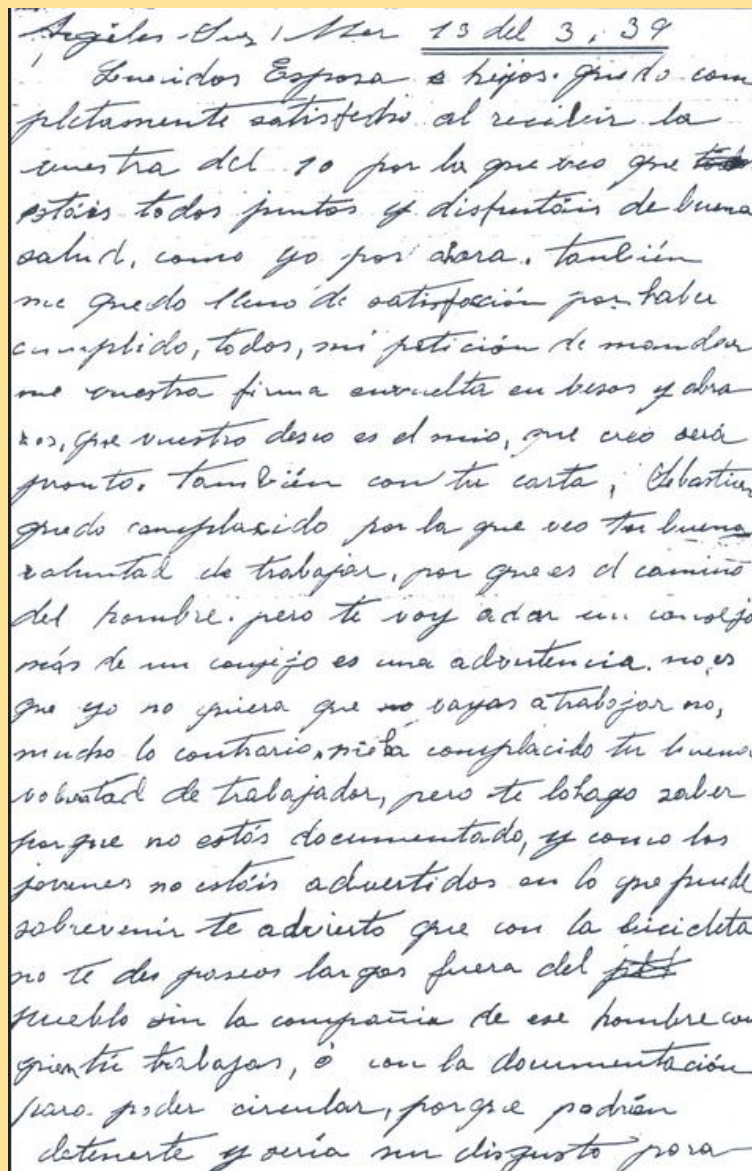 Argéles-Sur/Mer 13 del 3, 39
Queridos Esposa e hijos. quedo com
pletamente satisfecho al recibir la
vuestra del 10 por la que veo que
estáis todos juntos y disfrutáis de buena
salud, como yo por ahora. también
me quedo lleno de satisfacción por haber
cumplido, todos, mi petición de mandar
me vuestra firma envuelta en besos y abra
zos, que vuestro deseo es el mio, que creo será
pronto. también con tu carta, Sebastian
quedo complacido por la que veo tu buena
voluntad de trabajar, por que es el camino
del hombre. pero te voy adar un consejo
más de un consejo es una advertencia. no es
que yo no quiera que no vayas atrabajar no,
mucho lo contrario, me ha complacido tu buena
voluntad de trabajador, pero te lohago saber
porque no estás documentado, y como los
jovenes no estáis advertidos en lo que puede
sobrevenir te advierto que con la bicicleta
no te des paseos largos fuera del
pueblo sin la compañia de ese hombre con
quien tú trabajas, ó con la documentación
para poder circular, porque podrian
detenerte y seria un disgusto para